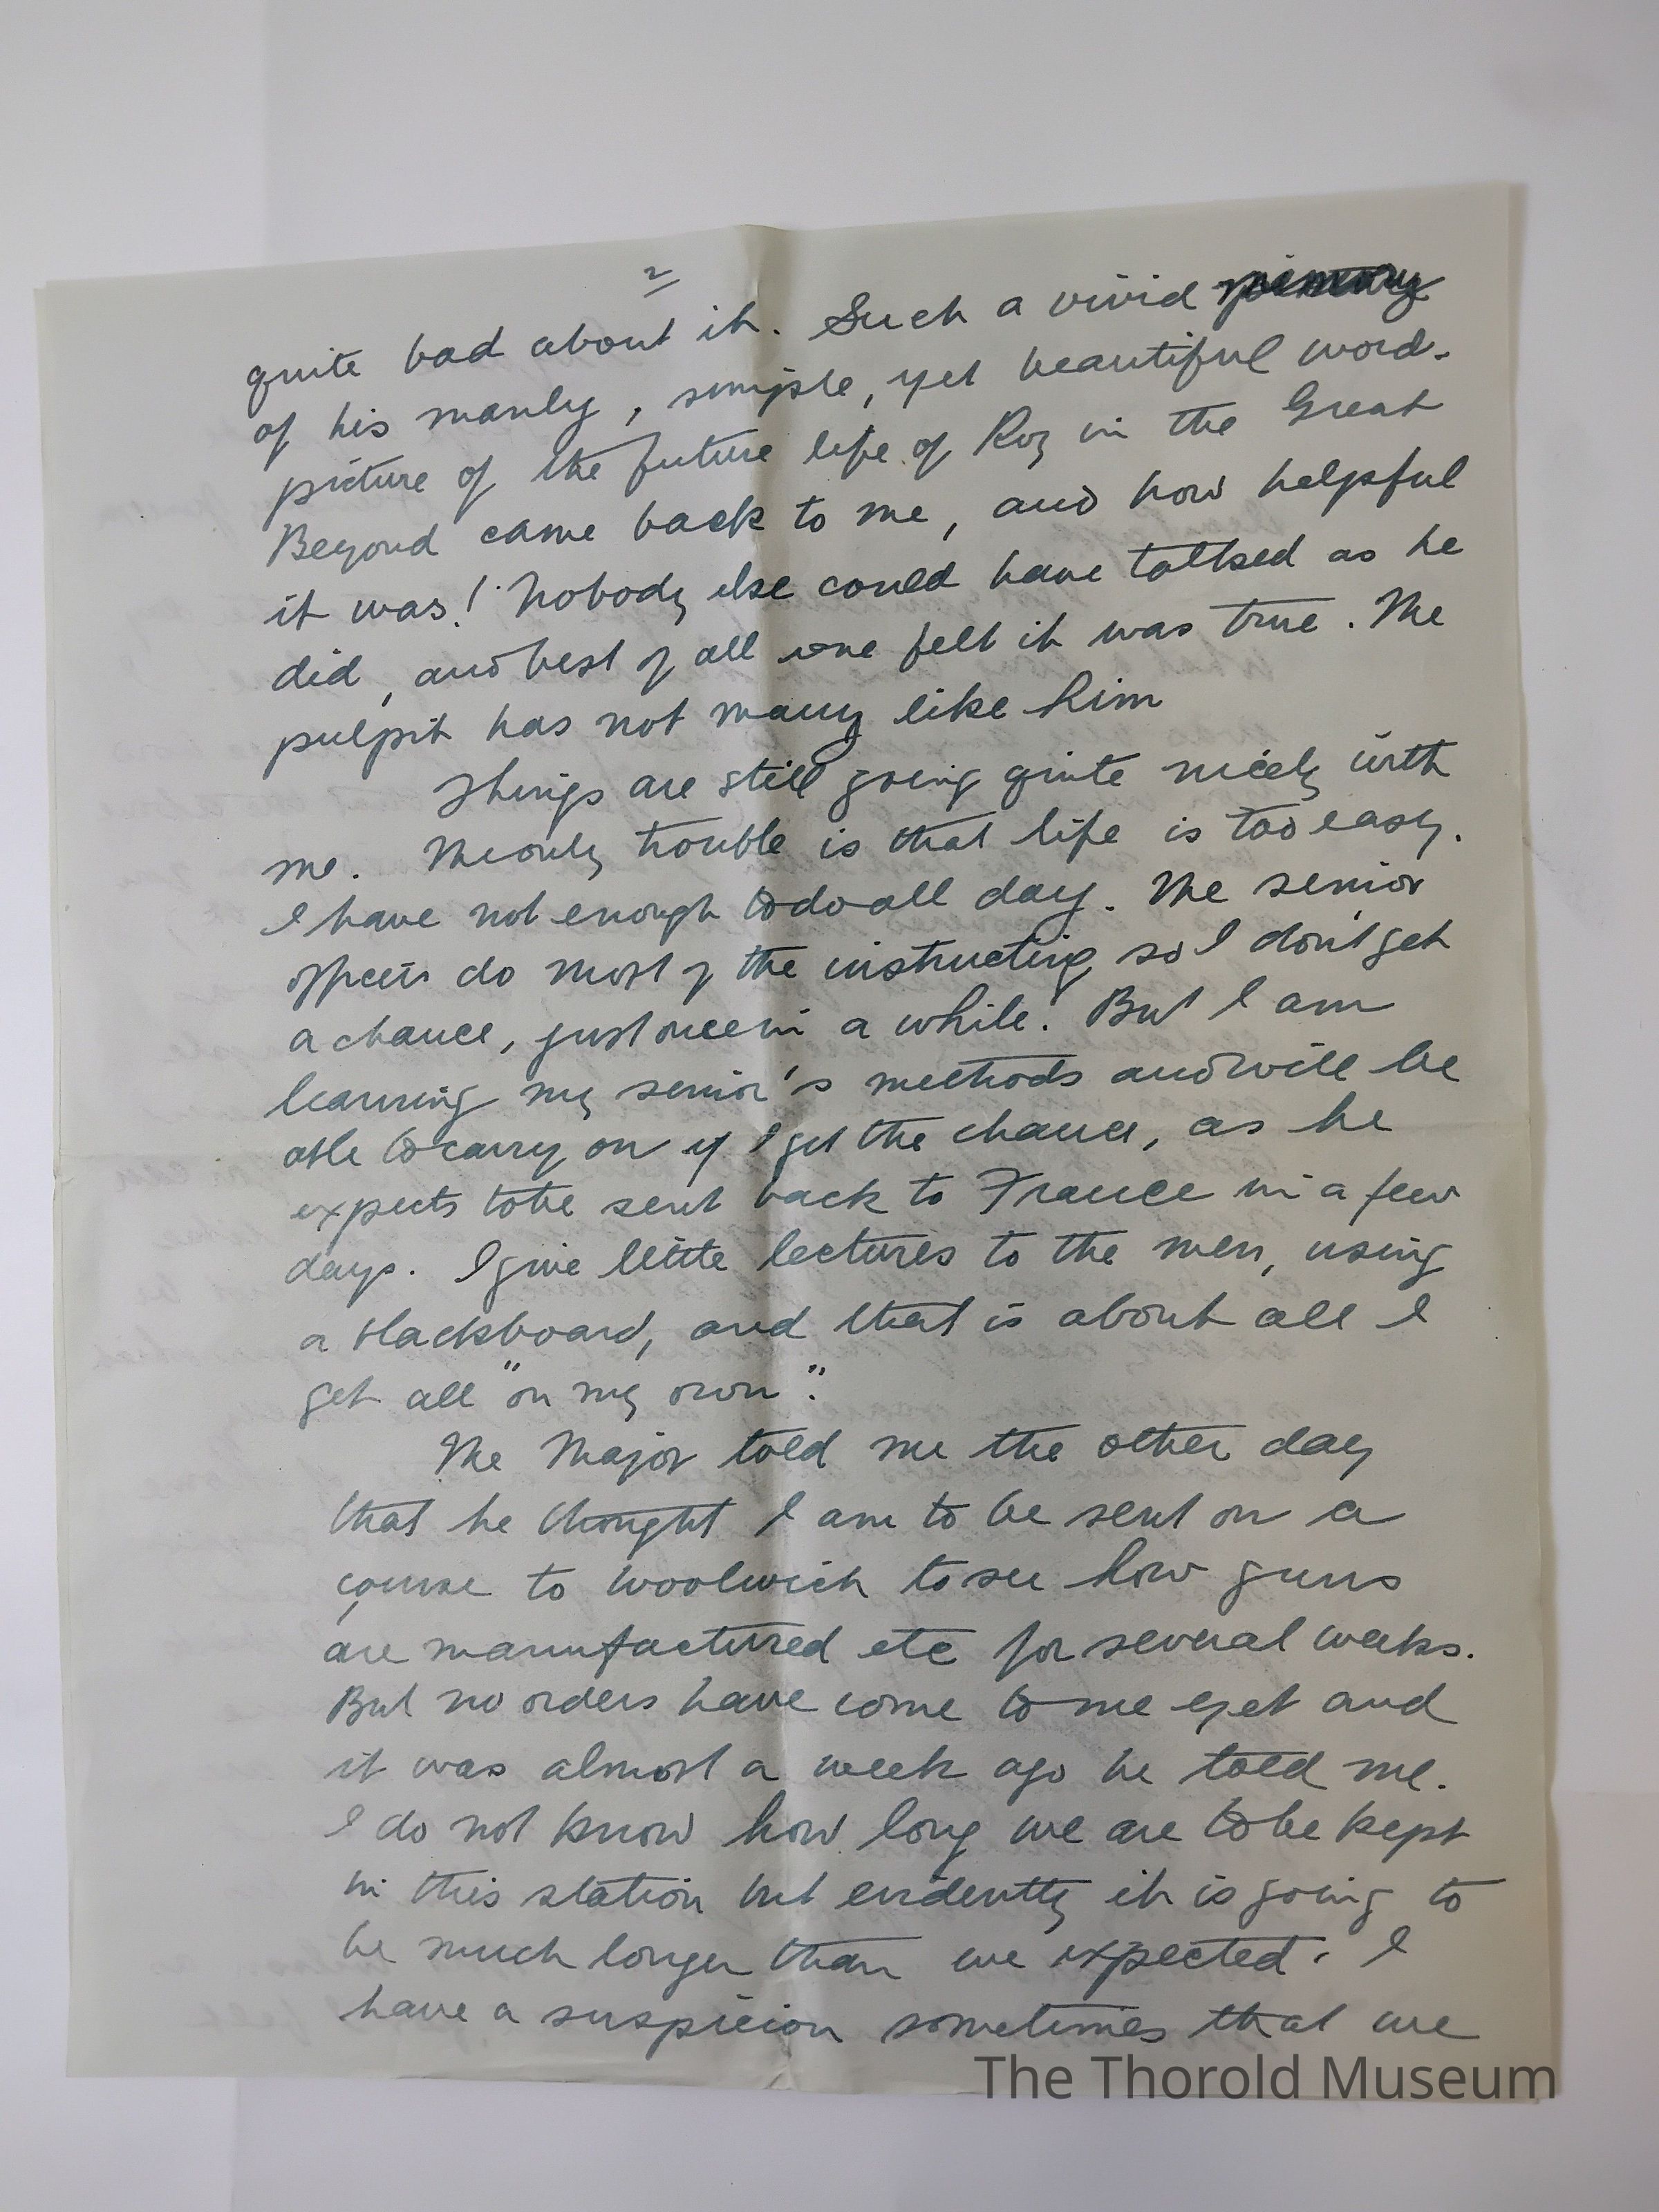 2
quite bad about it. Such a vivid memory
of his manly, simple, yet beautiful word-
picture of the future life of Roy in the Great
Beyond came back to me, and how helpful
it was! Nobody else could have talked as he
did, and best of all one felt it was true. The
pulpit has not many like him
Things are still going quite nicely with
me. The only trouble is that life is too easy.
I have not enough to do all day. The senior
officers do most of the instructing so I don't get
a chance, just once in a while. But I am
learning my senior's methods and will be
able to carry on if I get the chance, as he
expects to be sent back to France in a few
days. I give little lectures to the men, using
a blackboard, and that is about all I
get all "on my own".
The Major told me the other day
that he thought I am to be sent on a
course to Woolwich to see how guns
are manufactured etc for several weeks.
But no orders have come to me yet and
it was almost a week ago he told me.
I do not know how long we are to be kept
in this station but evidently it is going to
be much longer than we expected. I
have a suspicion sometimes that we
The Thorold Museum